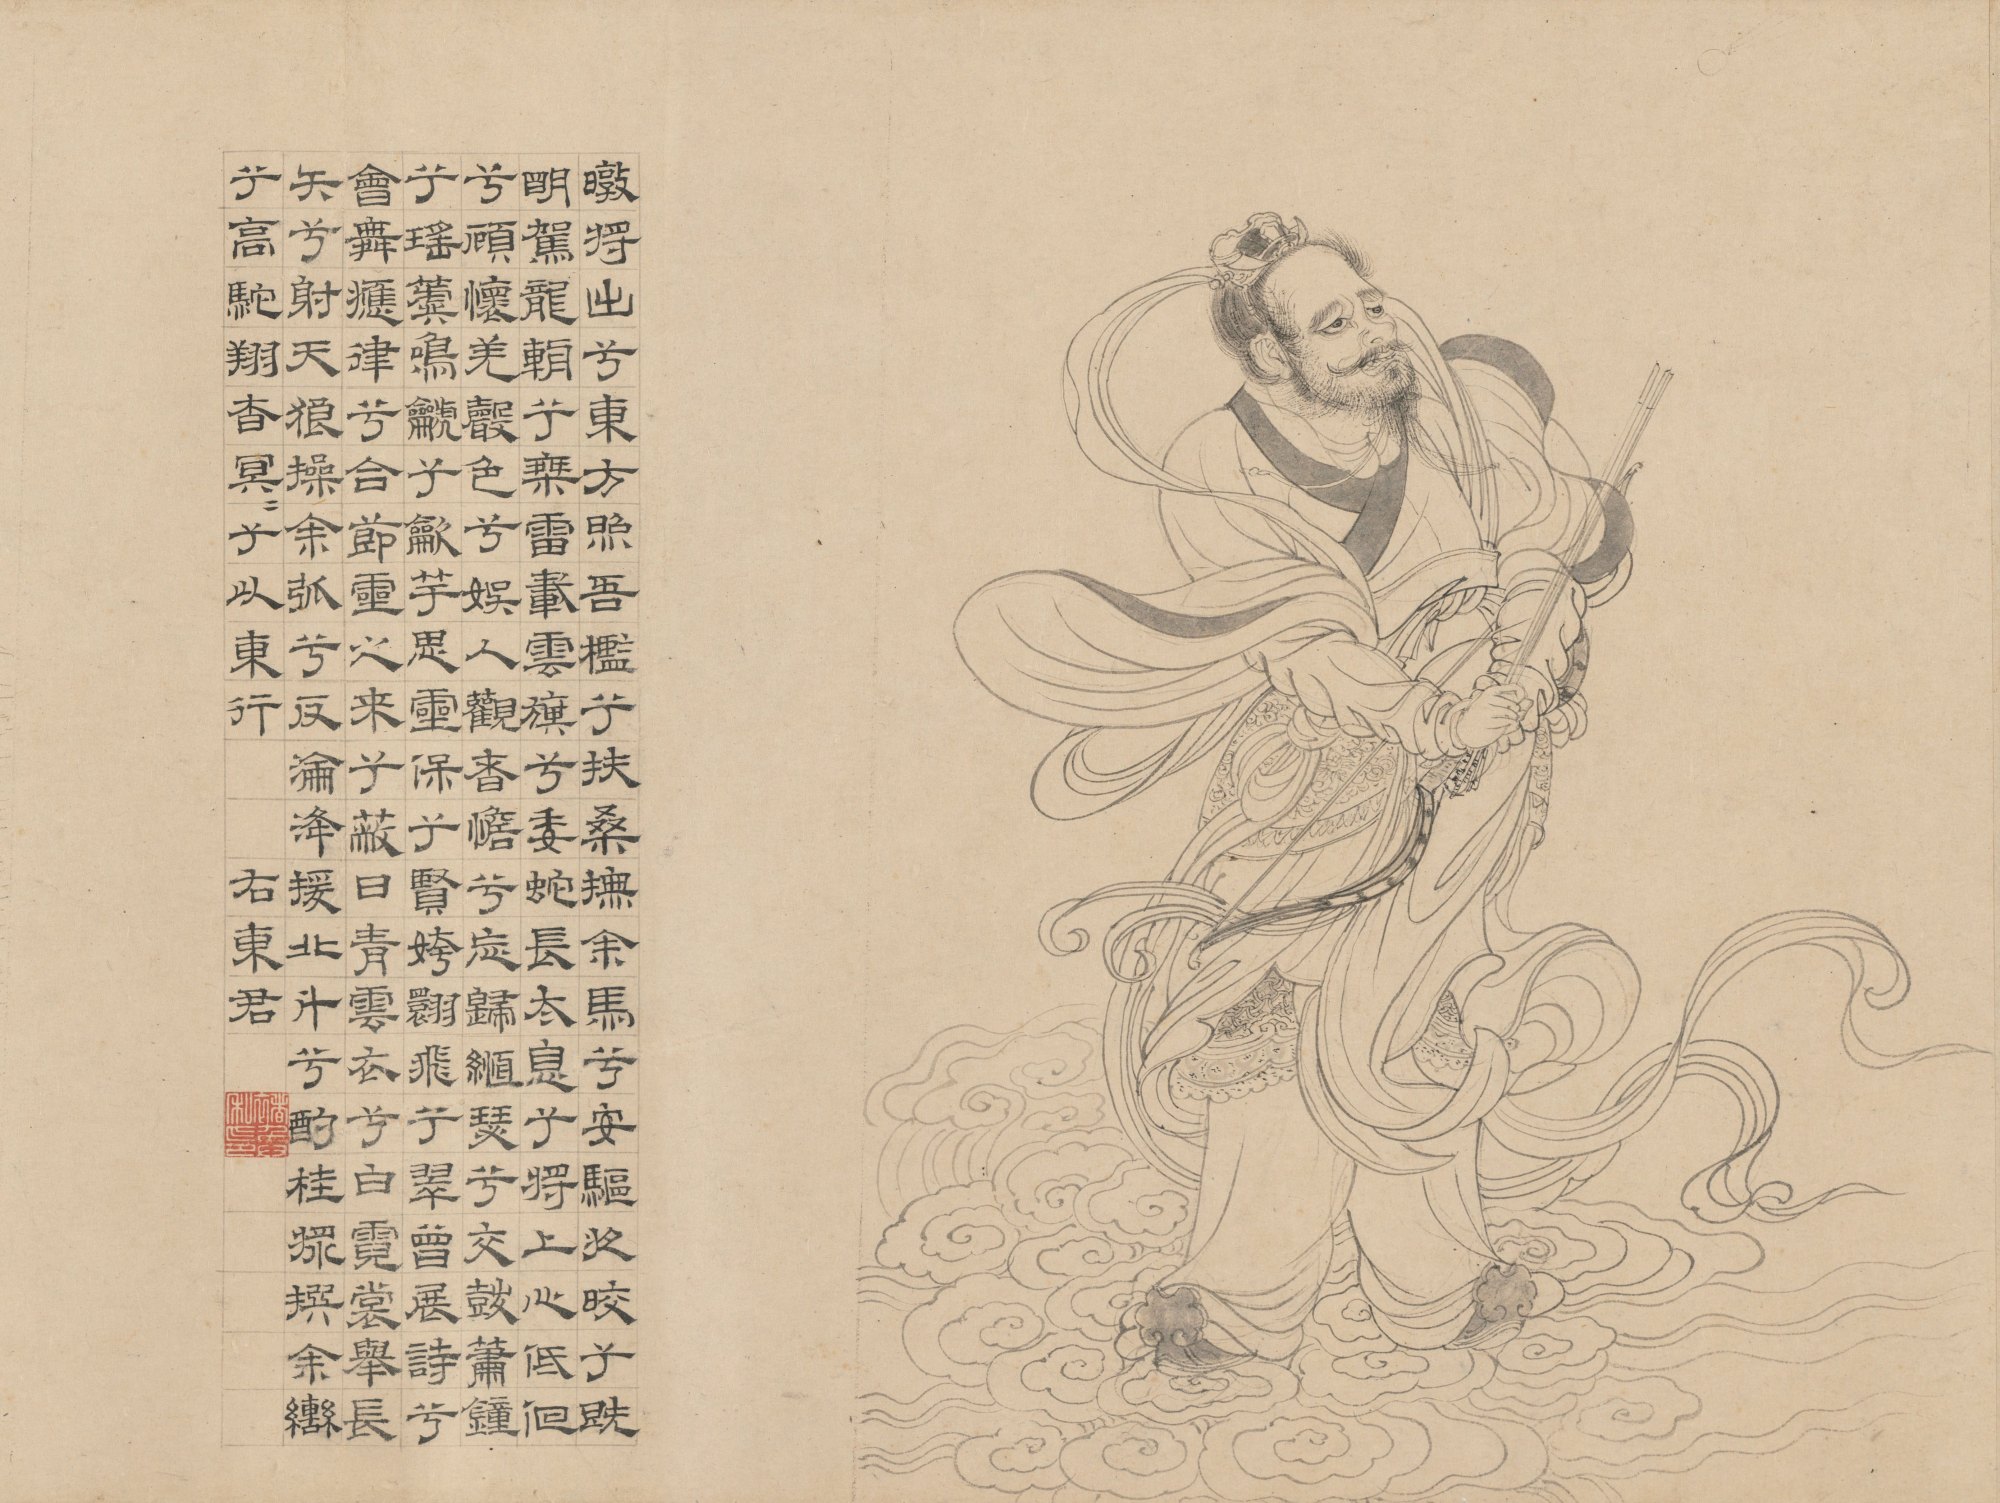 暾將出兮東方照吾檻兮扶桑撫余馬兮安驅夜晈兮既
明駕龍輈兮乘雷載雲旗兮委蛇長太息兮將上心低佪
兮顧懷羌聲色兮娛人觀者憺兮忘歸緪瑟兮交鼓蕭鐘
兮瑤簴鳴䶵兮龡竽思靈保兮賢姱翾飛兮翠曾展詩兮
會舞應律兮合節靈之来兮蔽日青雲衣兮白霓裳舉長
矢兮射天狼操余弧兮反淪降援北斗兮酌桂漿撰余轡
兮高駝翔杳冥〻兮以東行 右東君